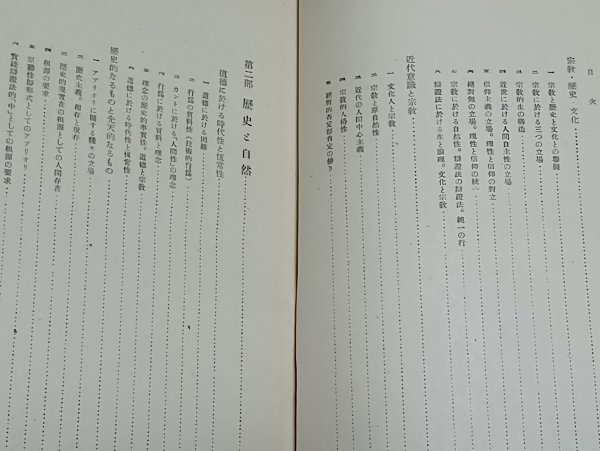 目次
宗教・歴史・文化
一 宗教と歴史と文化との聯關
二 宗教に於ける三つの立場
三 宗教的生の構造
四 近世に於ける人間自主性の立場
五 信仰主義の立場。理性と信仰の對立
六 絕對無の立場。理性と信仰の統一
七 宗教に於ける自然性。辯證法の辯證法。純一の行
八 辯證法に於ける生と論理。文化と宗教
近代意識と宗教
一 文化人と宗教
二 宗教と原自然性
三 近代の人間中心主義
四 宗教的人格性
五 絕對的否定卽肯定の働き
第二部 歴史と自然
道德に於ける時代性と恆常性
一 道德に於ける因襲
二 行爲の質料性(技術的行爲)
三 カントに於ける「人間性」の理念
四 行爲に於ける質料と理念
五 理念の歴史的事實性。道德と宗教
六 道德に於ける時代性と恆常性
歴史的なるものと先天的なるもの
一 アプリオリに關する種々の立場
二 歴史主義。根存と現存
三 歴史的現實在の根源としての人間存在
四 根源の要求
五 原動性卽形式としてのアプリオリ
六 實踐辯證法的「中」としての根源の要求